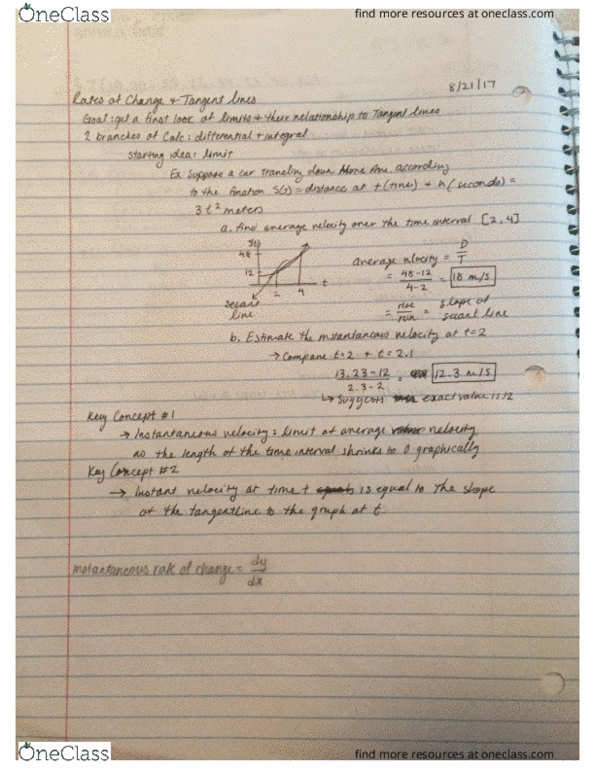 OneClass
find more resources at oneclass.com
8/21/17
Rates of Change + Tangent lines
Goal: get a first look at limits + their relationship to Tangent lines
2 branches of Calc: differential + integral
starting idea: limit
Ex: Suppose a car traveling down line according
to the function S(t) = distance at t (time) + (seconds) =
3t² meters
a. find average velocity over the time interval [2,4]
S(t)
48
12
2 4 t
secant
line
average velocity = D/T
= 48-12/4-2 = 18 m/s
= rise/run = slope of secant line
b. Estimate the instantaneous velocity at t=2
→ Compare t=2 + t=2.1
13.23-12/2.3-2 = 12.3 m/s
↳ suggests exact value is 12
Key Concept #1
→ Instantaneous velocity: limit of average velocity
as the length of the time interval shrinks to 0 graphically
Key Concept #2
→ Instant velocity at time t equals is equal to the slope
of the tangent line to the graph at t.
instantaneous rate of change = dy/dx
OneClass
find more resources at oneclass.com